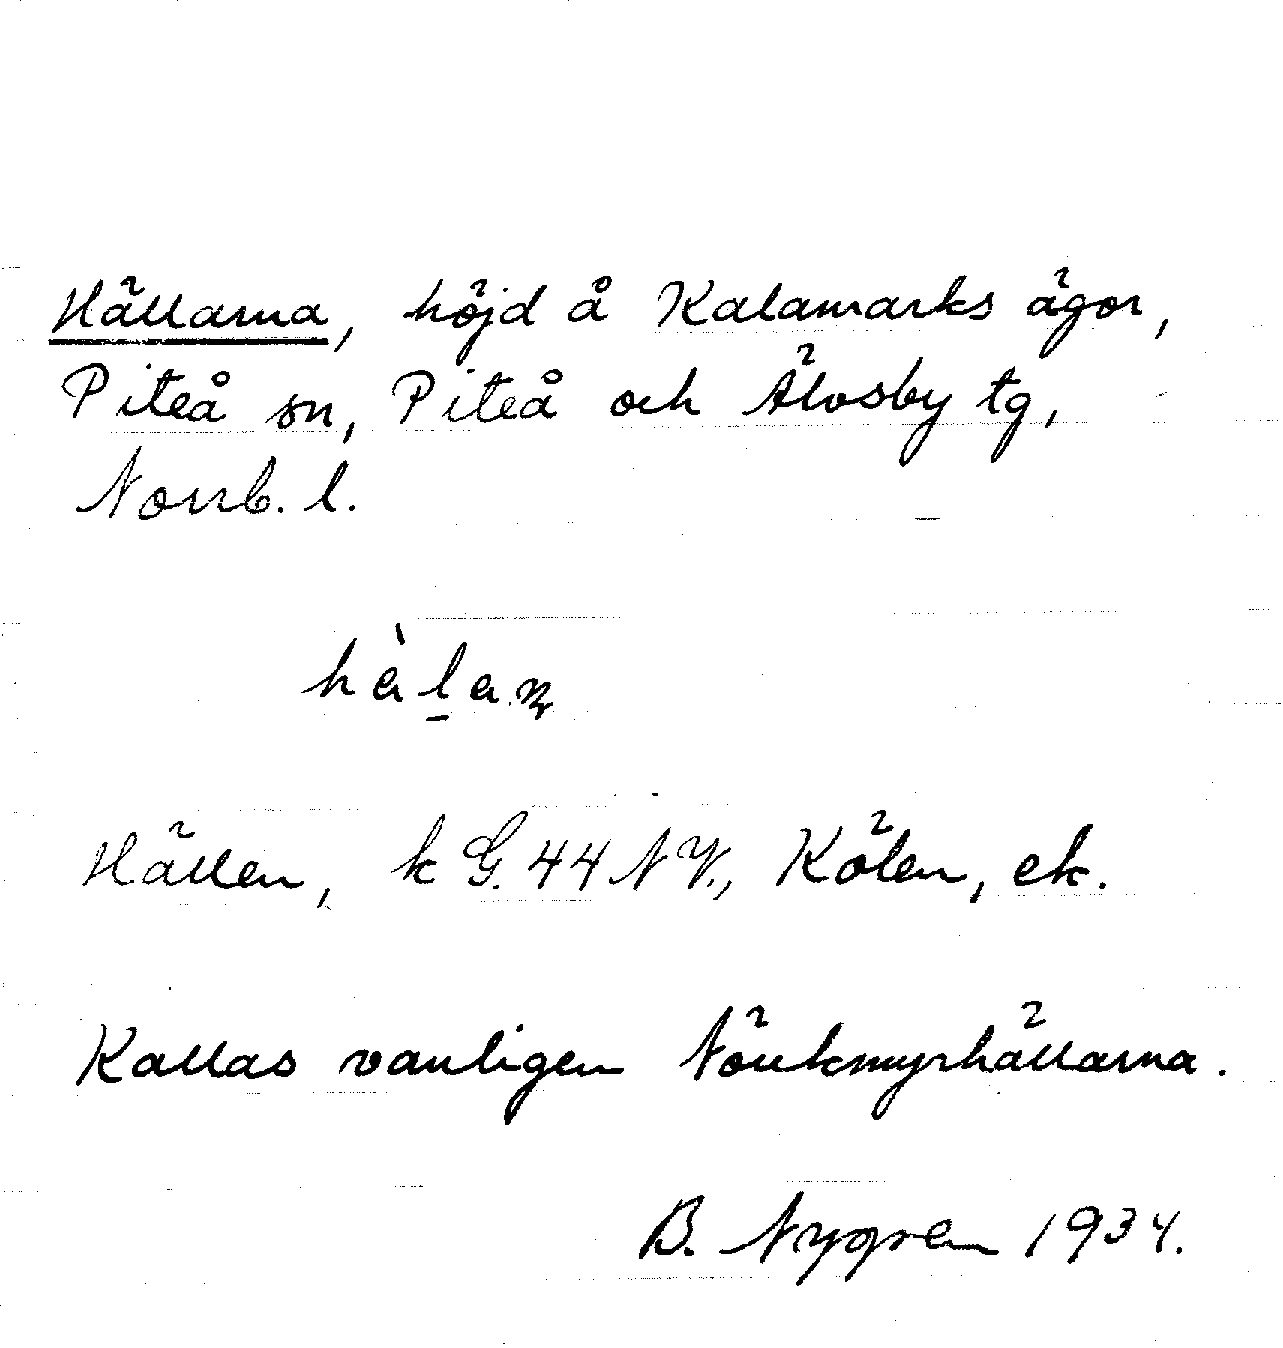 Hällarna, höjd å Kalamarks ägor,
Piteå sn, Piteå och Älvsby tg,
Norrb. l.
Hällen, k G. 44 NV., Kölen, ek.
Kallas vanligen Nörikmyrhällarna.
B. Nygren 1934.